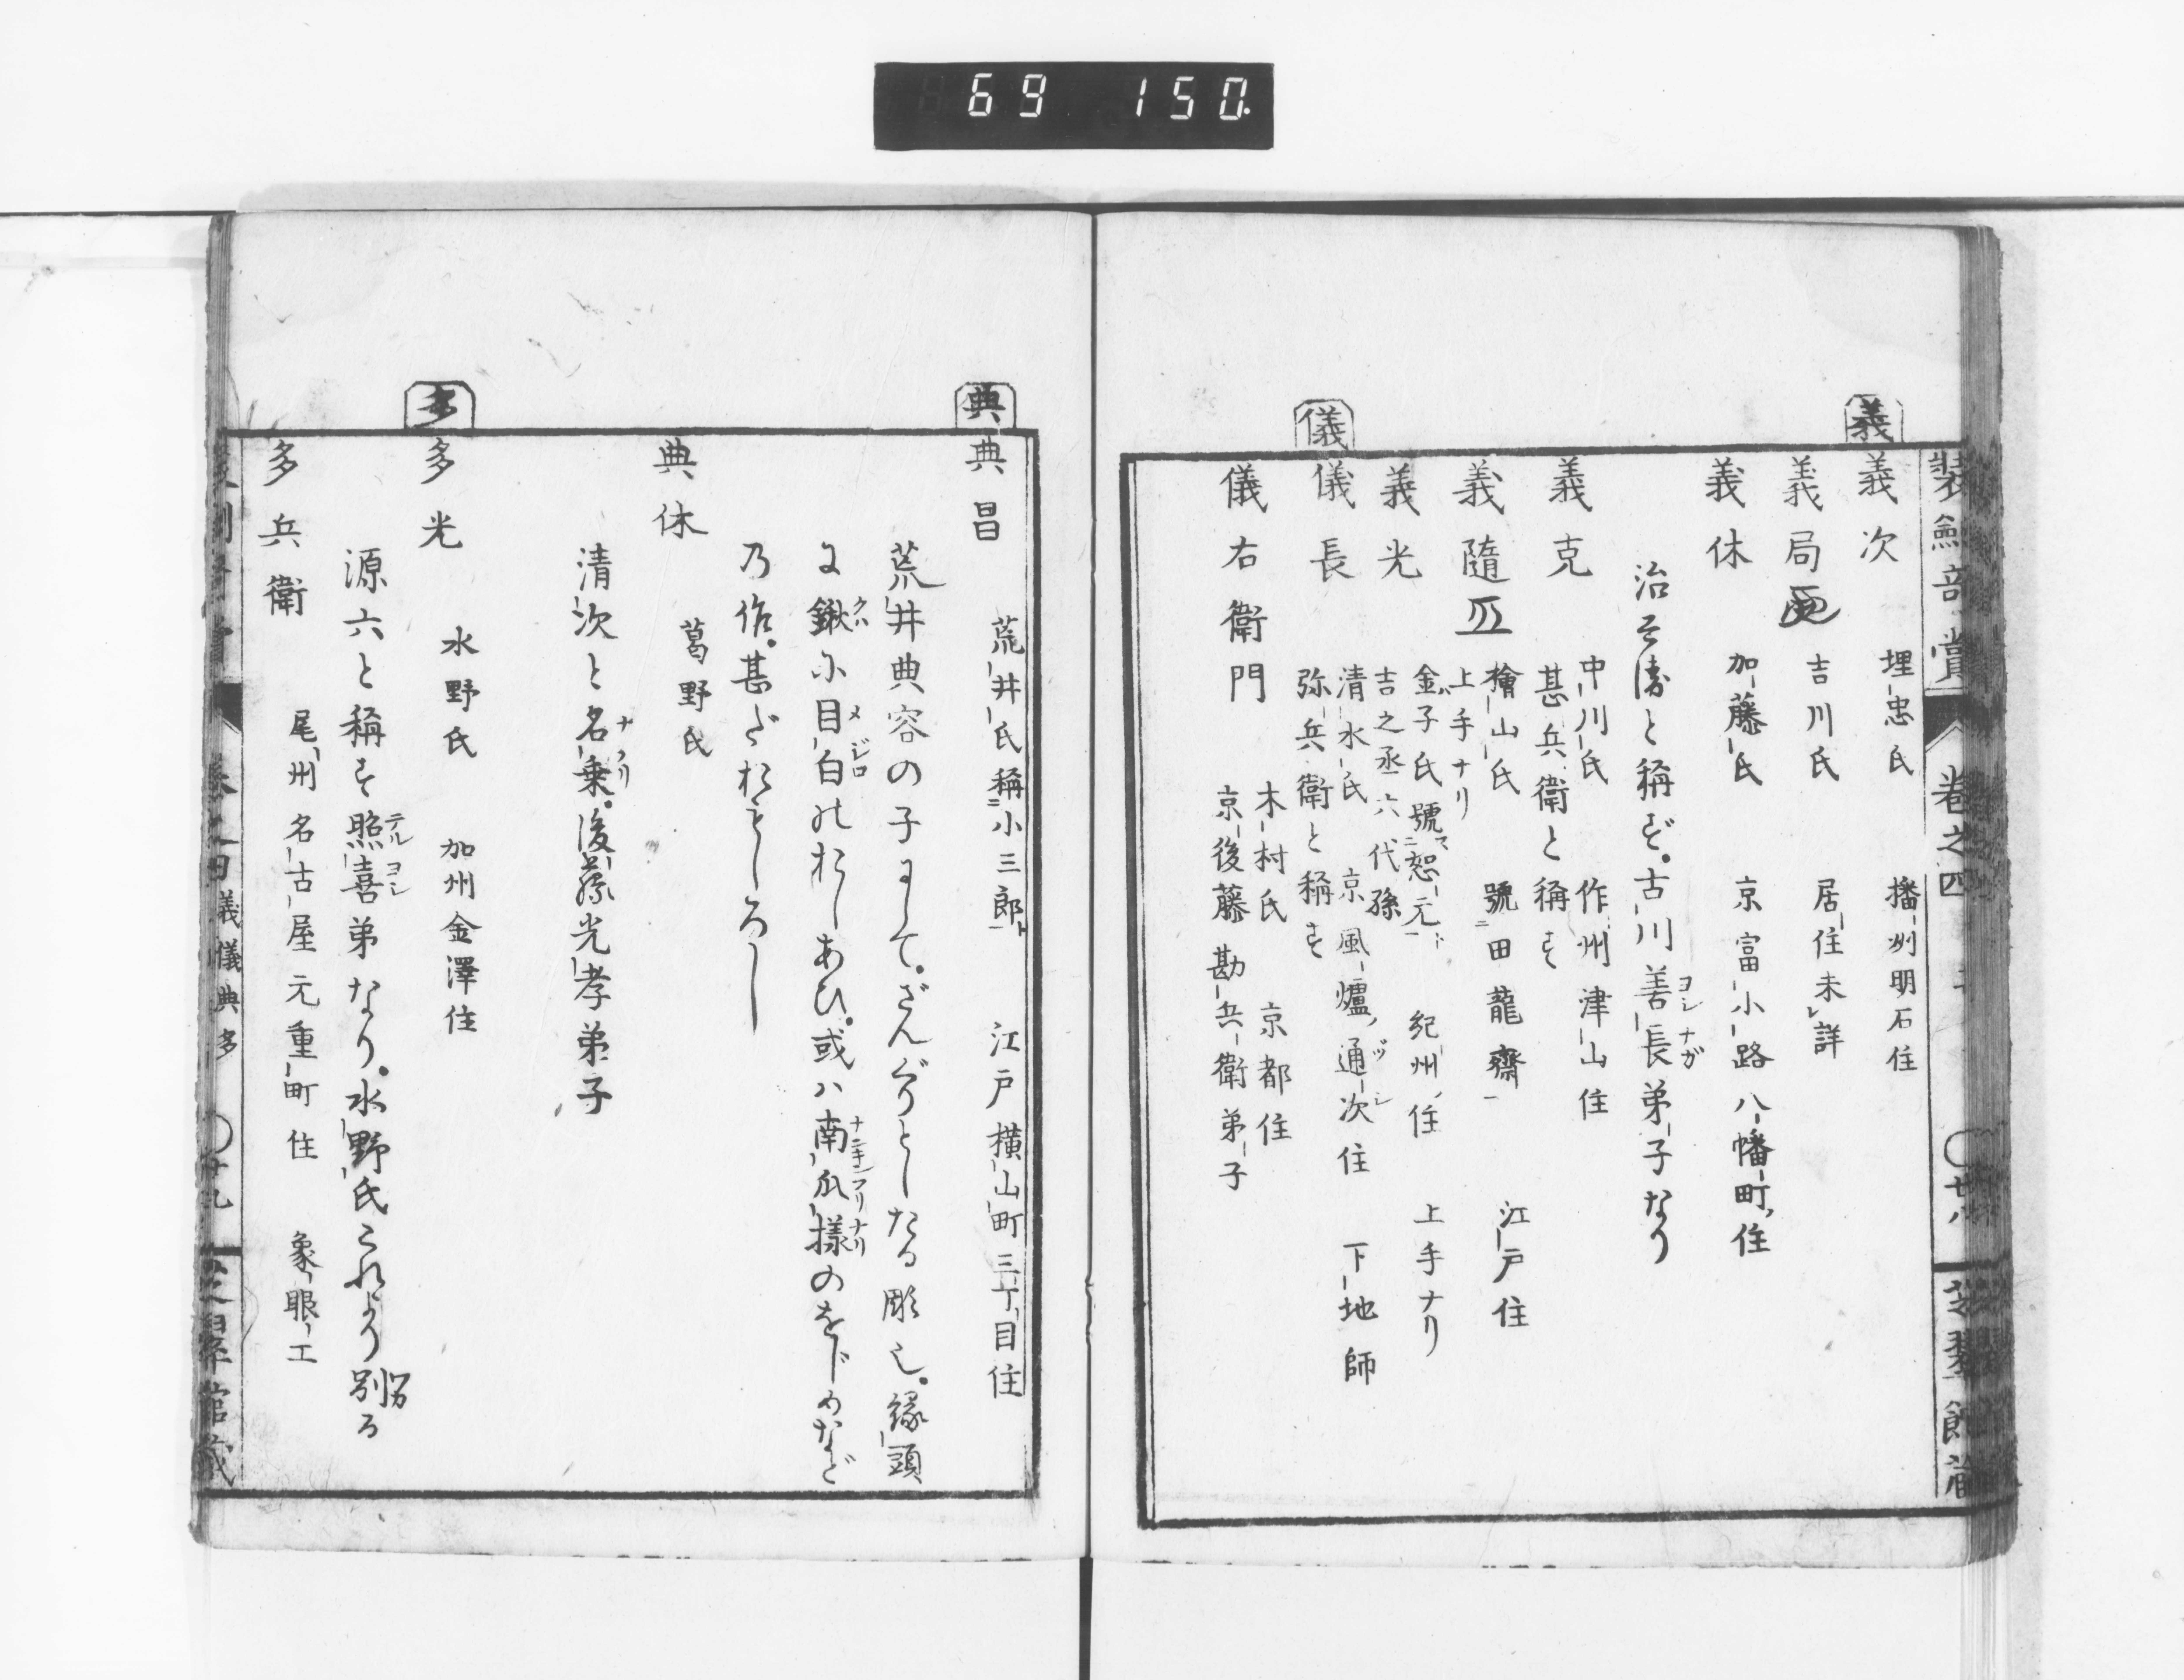 69 150.
義
義次 埋忠氏 播州明石住
義局 吉川氏 居住未詳
義休 加藤氏 京富小路八幡町住
と稱ず。古川善長弟子なり
義克 中川氏 作州津山住
甚兵衛と稱す
義隨 檜山氏 號田龍齋 江戸住
上手ナリ
義光 金子氏 號恕元 紀州住 上手ナリ
吉之丞六代孫
儀
儀長 清水氏 京風爐通次住 下地師
弥兵衛と稱す
儀右衛門 木村氏 京都住
京後藤勘兵衛弟子
裝劍奇賞 巻之四 廿八
典
典昌 荒井氏稱小三郎 江戸横山町三丁目住
荒井典容の子にして。ざんぐりとしたる彫也。縁頭
に鍬に目白のおしあひ。或ハ南瓜様のをじめなど
乃作。甚だおもしろし
典休 葛野氏
清次と名乗。後藤光孝弟子
多
多光 水野氏 加州金澤住
源六と稱す照喜弟なり。水野氏これより別る
多兵衛 尾州名古屋元重町住 象眼工
儀典多 廿九